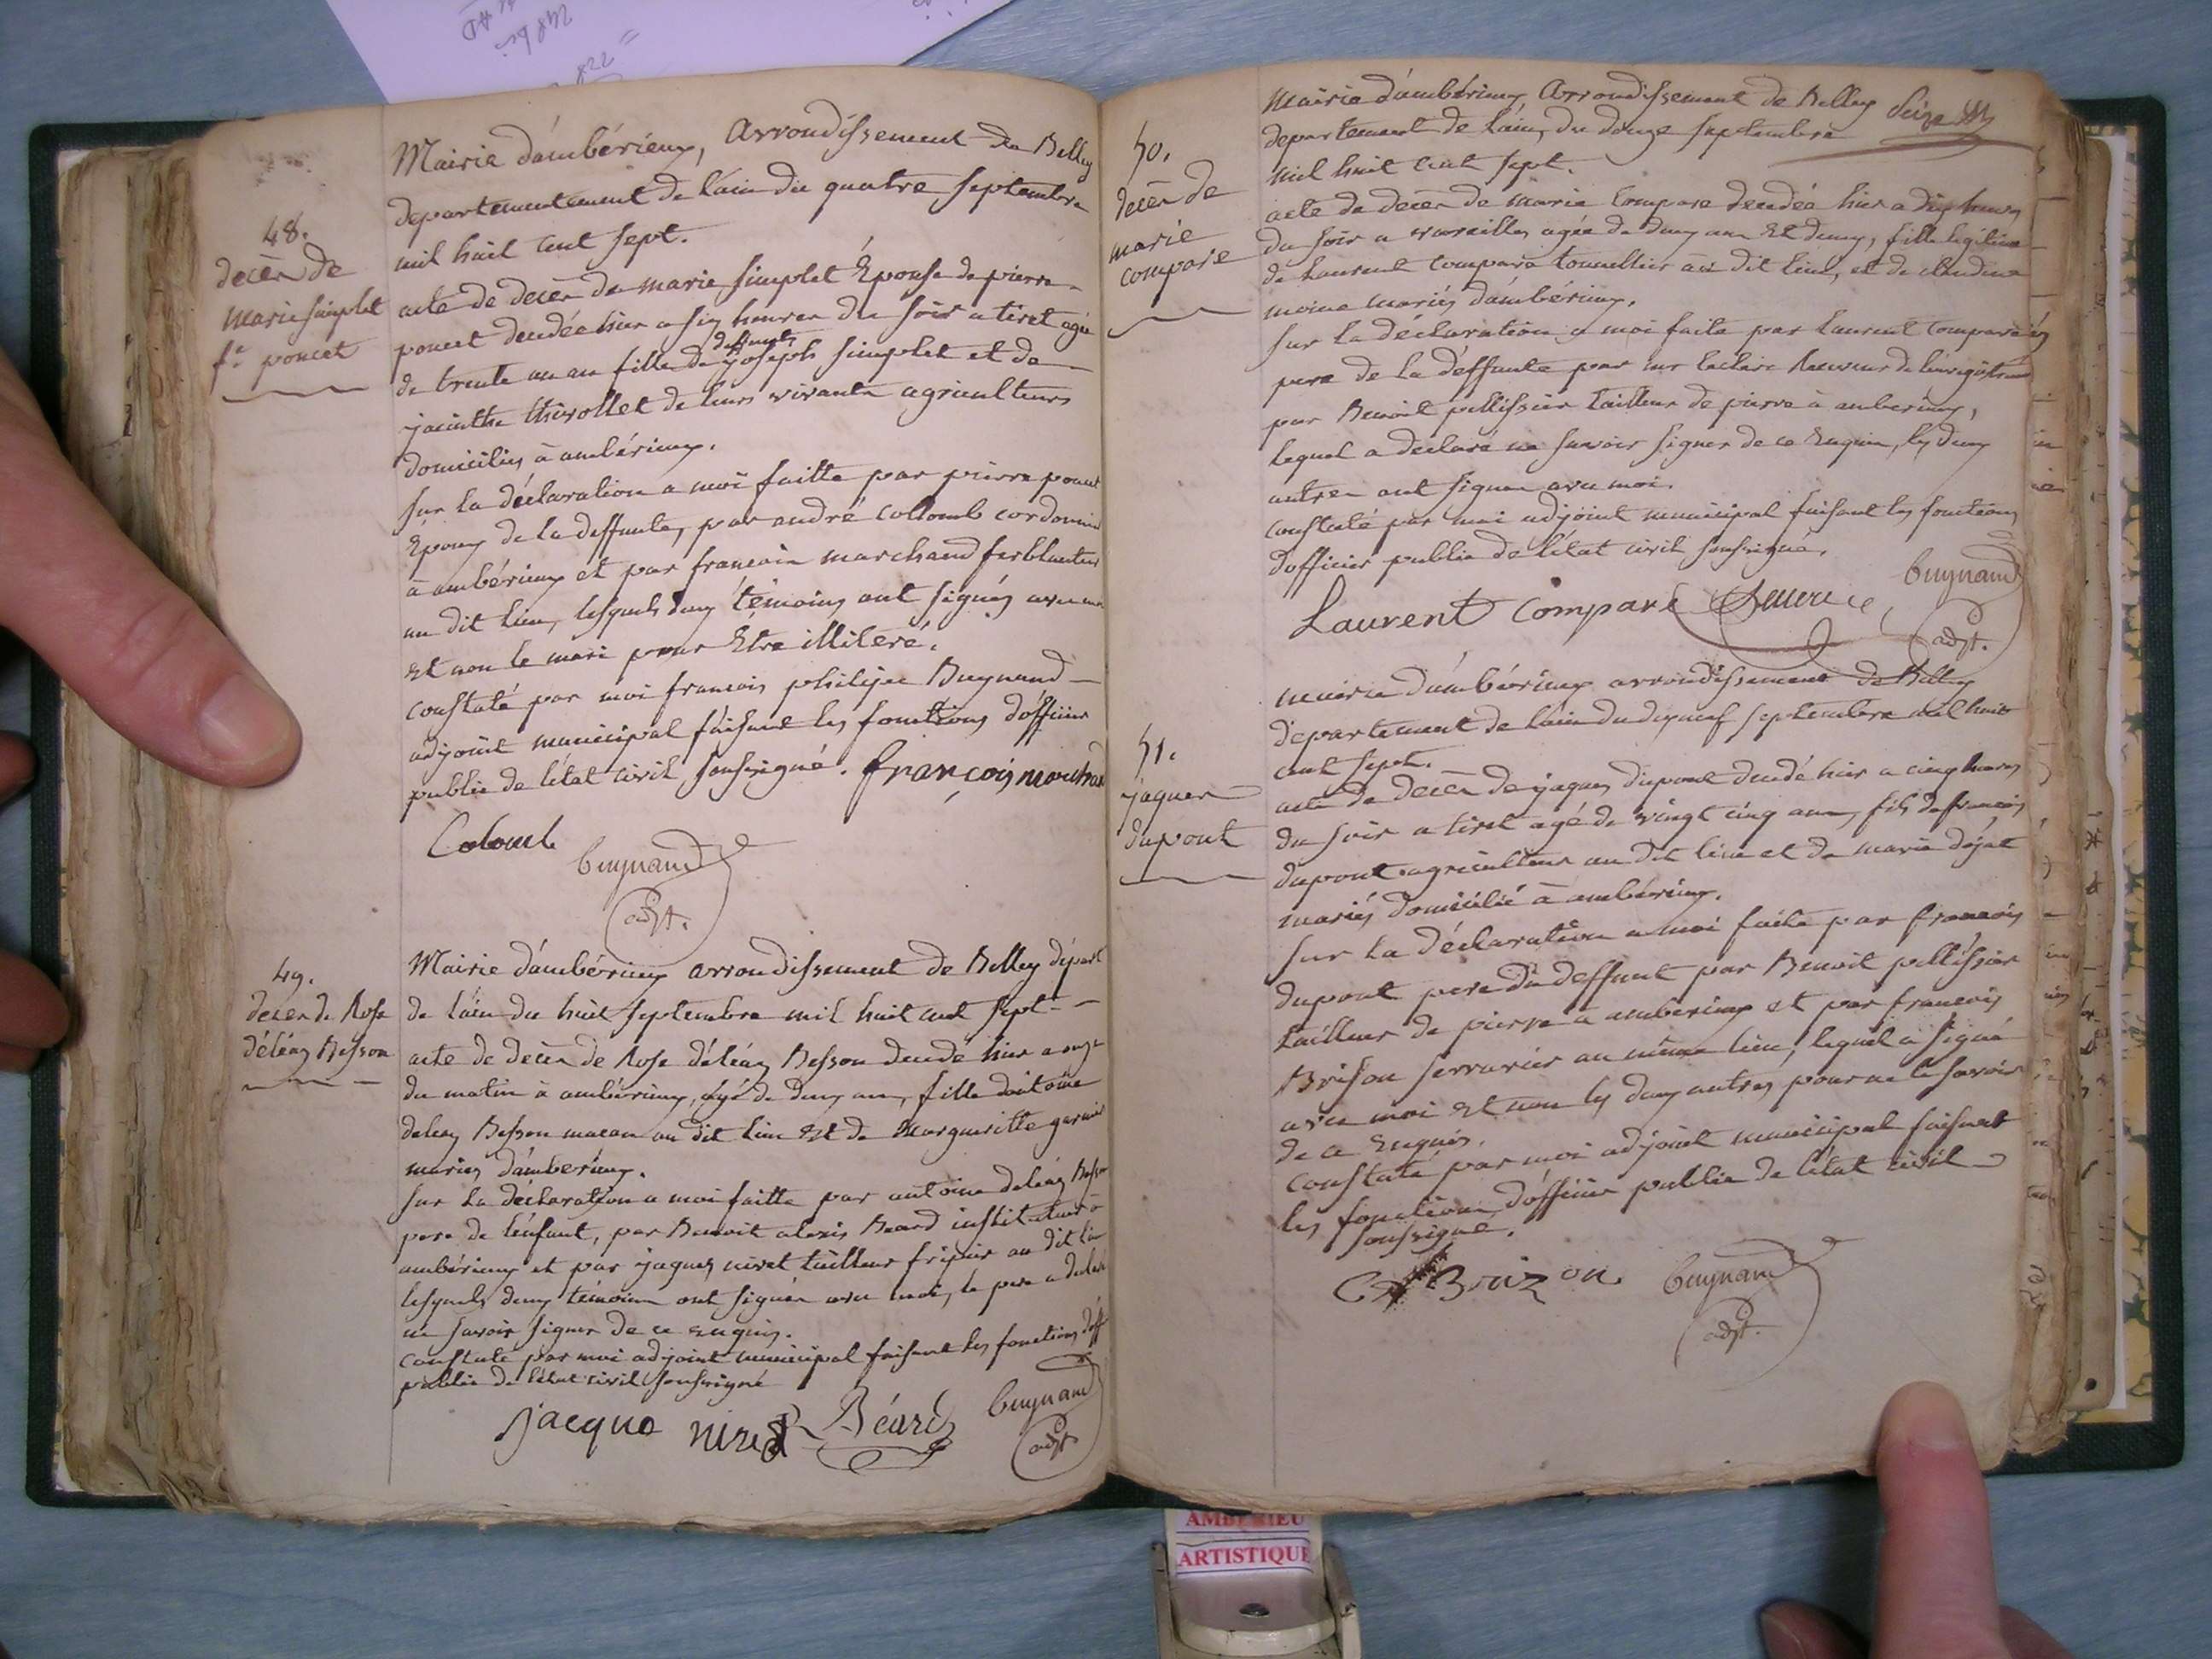 48.
decès de
marie simplet
fe poncet
Mairie d'ambérieux, Arrondissement de Belley
departementement de l'ain du quatre septembre
mil huit cent sept.
acte de decès de marie simplet Épouse de pierre
poncet decedée hier a six heures du soir a tiret agée
de trente un an fille de deffunts joseph simplet et de
jacinthe thivollet de leurs vivants agriculteurs
domiciliés à ambérieux.
sur la déclaration a moi faitte par pierre poncet
Époux de la deffunte, par andré collomb cordonnier
à ambérieux et par francois marchand ferblantier
au dit lieu, lesquels deux témoins ont signés avec moi
et non le mari pour Être illiteré.
constaté par moi francois philipe Buynand
adjoint municipal faisant les fonctions d'officier
public de l'état civil soussigné. françois marchand
Colomb
buynand
adjt.
49.
decès de Rose
déléaz Besson
Mairie d'ambérieux arrondissement de Belley départ
de l'ain du huit septembre mil huit cent sept
acte de decès de Rose déléaz Besson decedé hier a onze
du matin à ambérieux, agé de deux ans, fille d'antoine
deleaz Besson macon au dit lieu et de Margueritte garnier
mariés d'amberieux.
sur la déclaration a moi faitte par antoine deléaz Besson
pere de l'enfant, par Benoit alexis Béard instituteur à
ambérieux et par jaques niret tailleur fripier au dit lieu
lesquels deux témoins ont signés avec moi, le pere a declaré
ne savoir signer de ce enquis.
constaté par moi adjoint municipal faisant les fonctions d'off
public de l'état civil soussigné
jacque niret Béard buynand
adjt
50.
decès de
marie
compare
Mairie d'ambérieux Arrondissement de Belley Seize
departement de l'ain, du douze septembre
mil huit cent sept.
acte de decès de marie compare decedée hier a dix heures
du soir a vareilles agée de deux ans et demy, fille légitime
de Laurent compare tonnellier au dit lieu, et de claudine
moine mariés d'ambérieux.
sur la déclaration a moi faite par Laurent compare
pere de la deffunte par mr leclerc Receveur de l'enregistrement
par Benoit pellissier tailleur de pierre à amberieux,
lequel a declaré ne savoir signer de ce Enquis, les deux
autres ont signés avec moi.
constaté par moi adjoint municipal faisant les fonctions
d'officier public de l'état civil soussigné.
Laurent compare buynand
adjt.
51.
jaques
dupont
mairie d'ambérieux arrondissement de Belley
departement de l'ain du dixneuf septembre mil huit
cent sept.
acte de decès de jaques dupont decedé hier a cinq heures
du soir a tiret agé de vingt cinq ans, fils de francois
dupont agriculteur au dit lieu et de marie déjat
mariés domicilié à ambérieux.
sur la déclaration a moi faite par francois
dupont pere du deffunt par Benoit pellissier
tailleur de pierre à amberieux et par francois
Brison serrurier au même lieu, lequel a signé
avec moi et non les deux autres pour ne le savoir
de ce enquis.
constaté par moi adjoint municipal faisant
les fonctions d'officier public de l'état civil
soussigné.
Brizon buynand
adjt.
AMBERIEU
ARTISTIQUE